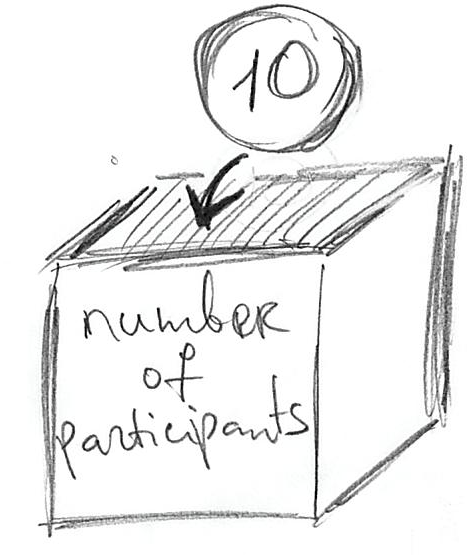 10
number
of
participants